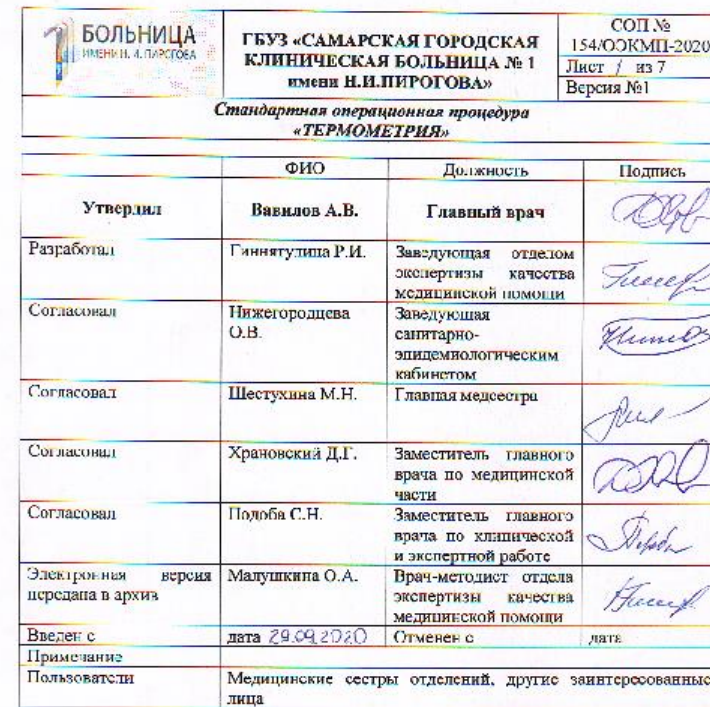 БОЛЬНИЦА
ИМЕНИ Н. И. ПИРОГОВА
ГБУЗ «САМАРСКАЯ ГОРОДСКАЯ
КЛИНИЧЕСКАЯ БОЛЬНИЦА № 1
имени Н.И.ПИРОГОВА»
СОП №
154/ОЭКМП-2020
Лист 1 из 7
Версия №1
Стандартная операционная процедура
«ТЕРМОМЕТРИЯ»
ФИО Должность Подпись
Утвердил Вавилов А.В. Главный врач
Разработал Гиннятулина Р.И. Заведующая отделом
экспертизы качества
медицинской помощи
Согласовал Нижегородцева Заведующая
О.В. санитарно-
эпидемиологическим
кабинетом
Согласовал Шестухина М.Н. Главная медсестра
Согласовал Храновский Д.Г. Заместитель главного
врача по медицинской
части
Согласовал Подоба С.Н. Заместитель главного
врача по клинической
и экспертной работе
Электронная версия Малушкина О.А. Врач-методист отдела
передана в архив экспертизы качества
медицинской помощи
Введен с дата 29.09.2020 Отменен с дата
Примечание
Пользователи Медицинские сестры отделений, другие заинтересованные
лица